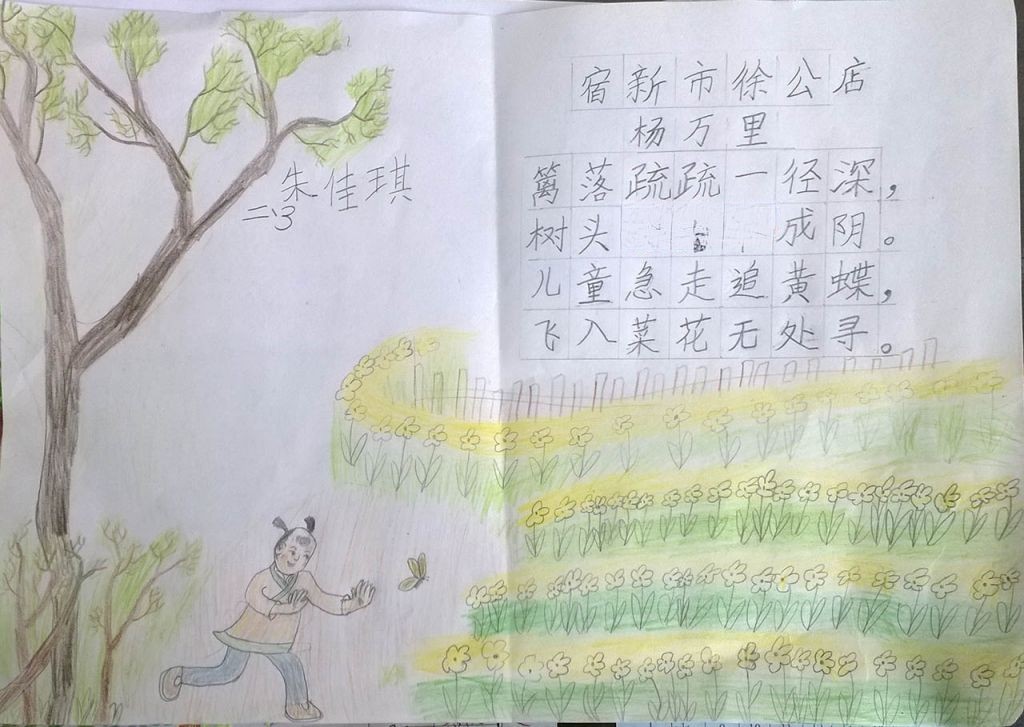 宿新市徐公店
杨万里
篱落疏疏一径深，
树头成阴。
儿童急走追黄蝶，
飞入菜花无处寻。
朱佳琪
二、3